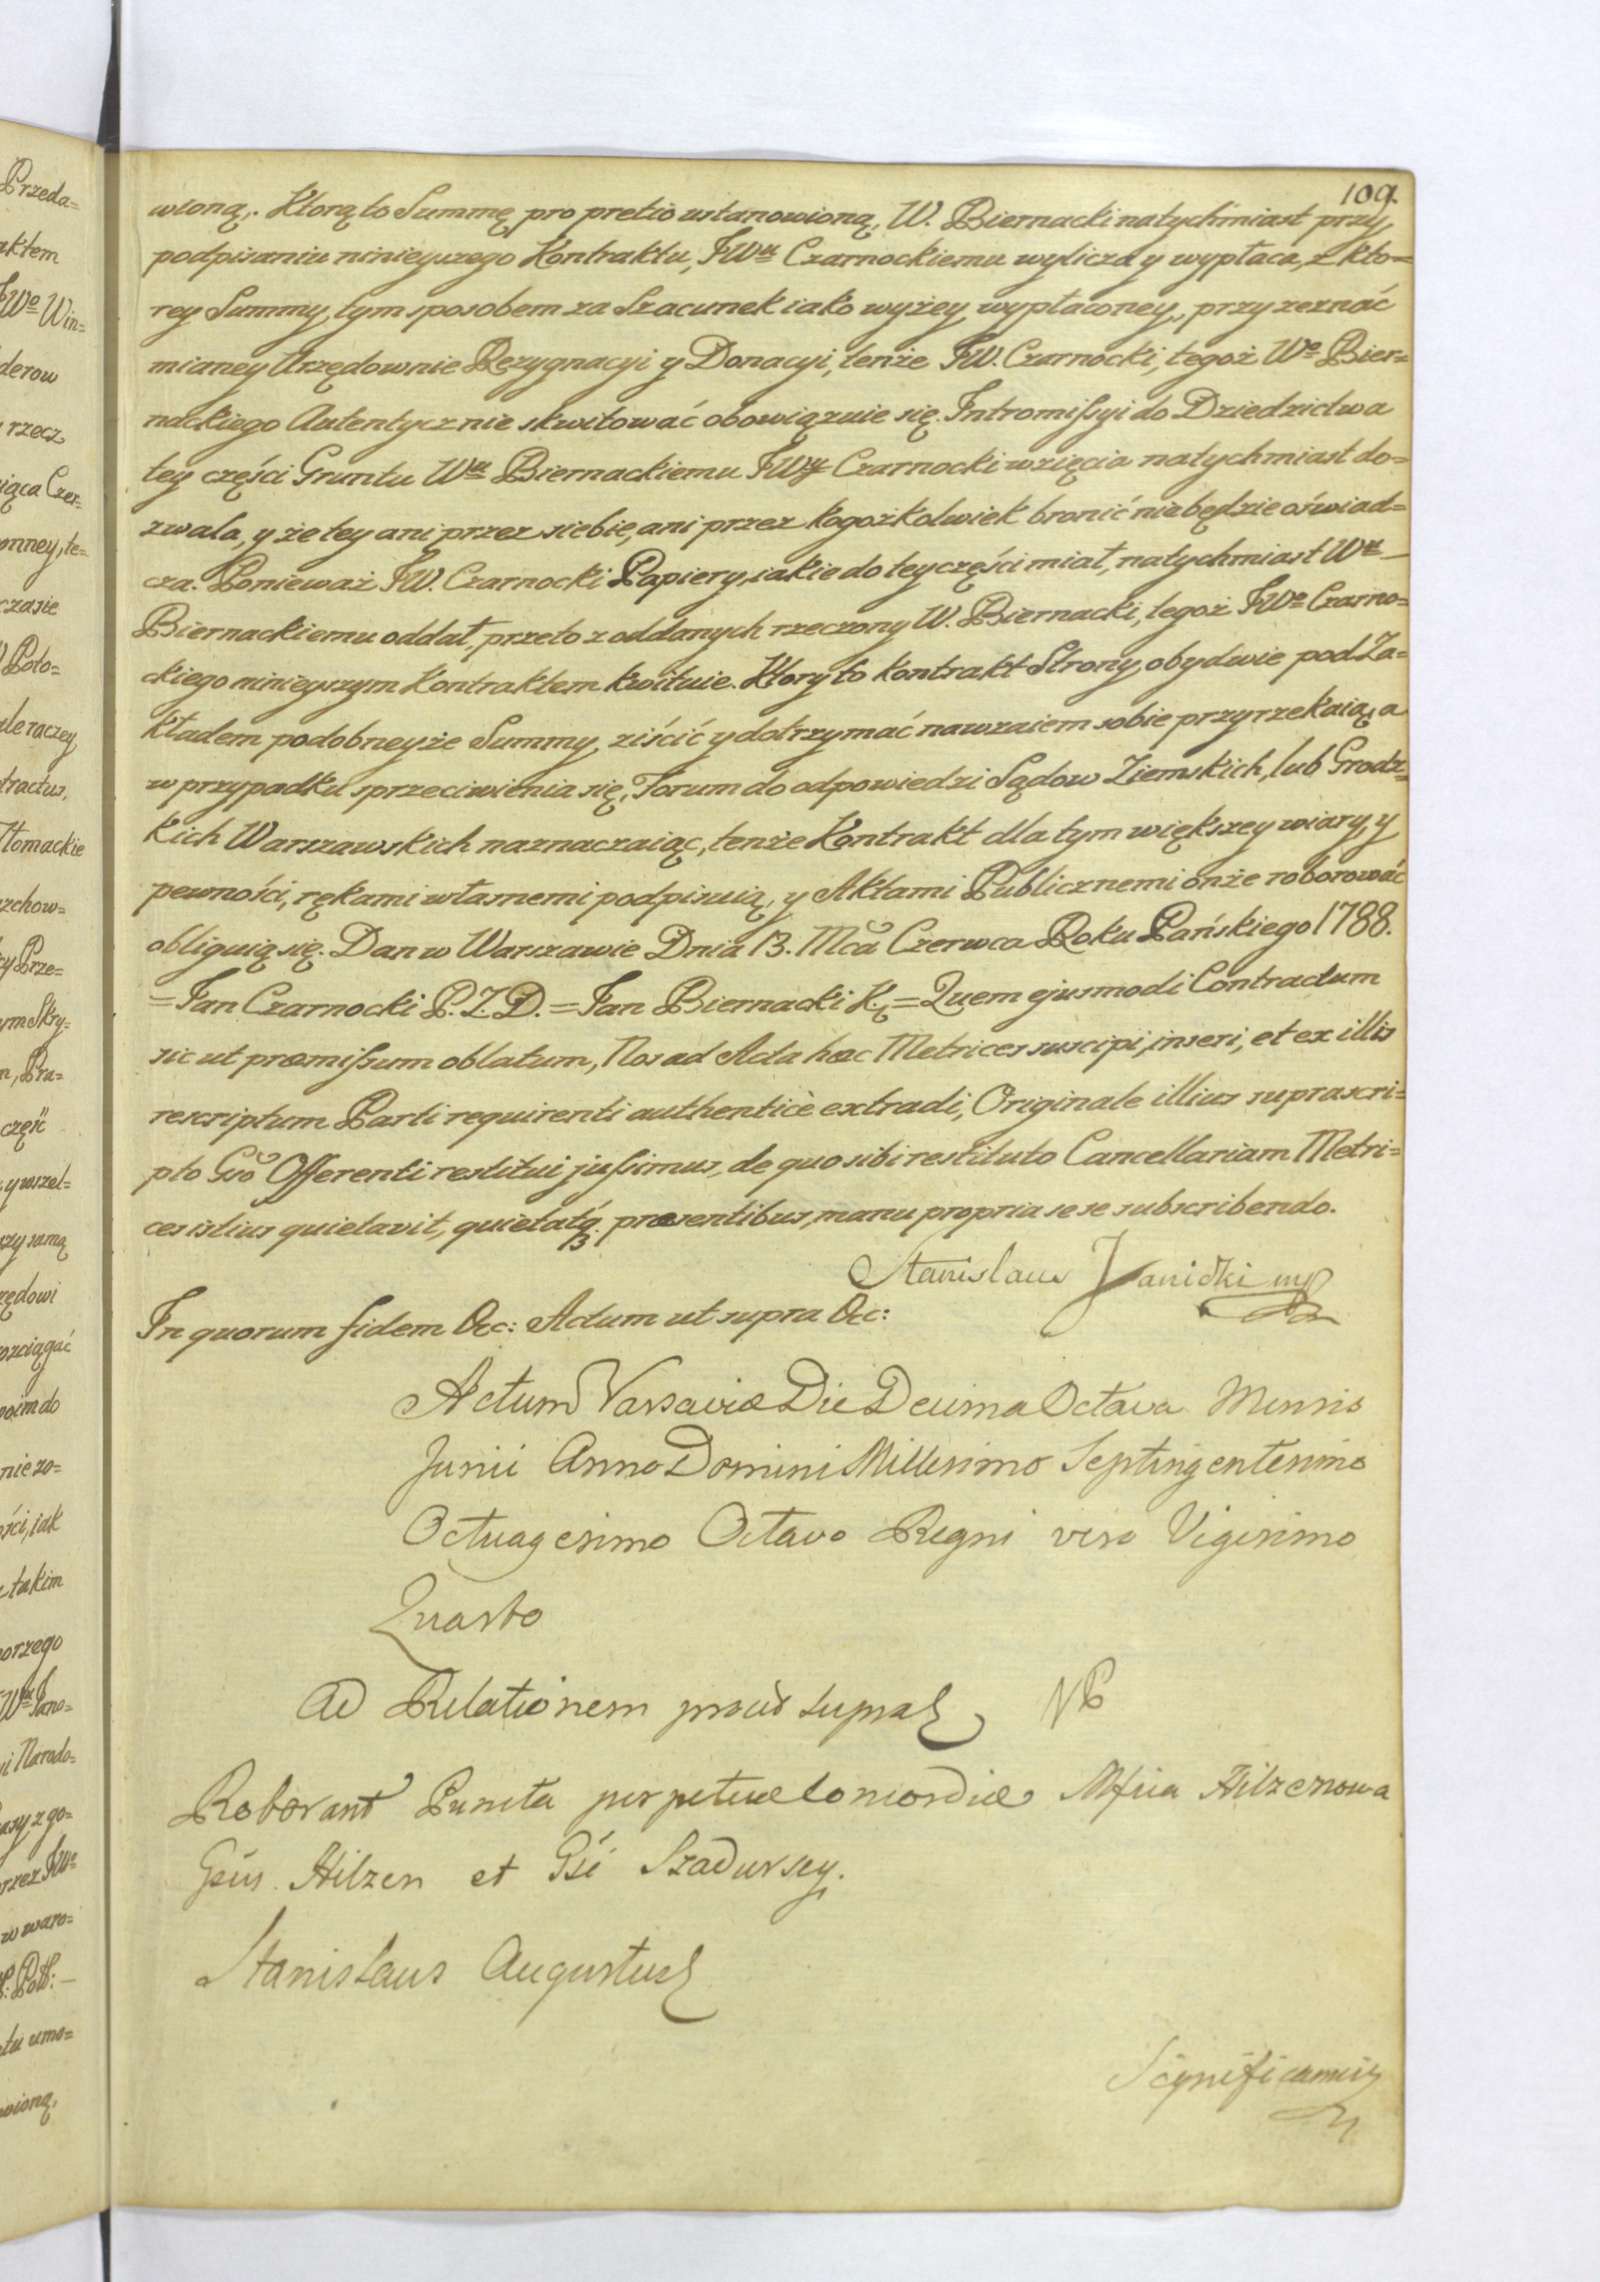 109.
wioną. Ktorą to Summę pro pretio ustanowioną, W. Biernacki natychmiast przy
podpisaniu ninieyszego Kontraktu, JWu Czarnockiemu wylicza y wypłaca, z kto=
rey Summy, tym sposobem za Szacunek iako wyżey wypłaconey, przy zeznać
mianey Urzędownie Rezygnacyi y Donacyi, tenże JW. Czarnocki, tegoż Wo Bier=
nackiego Autentycznie skwitować obowiązuie się. Intromissyi do Dziedzictwa
tey części Gruntu Wu Biernackiemu JWy Czarnocki wzięcia natychmiast do=
zwala, y że tey ani przez siebie, ani przez kogożkolwiek bronić nie będzie oświad=
cza. Ponieważ JW. Czarnocki Papiery, iakie do tey części miał, natychmiast Wu
Biernackiemu oddał, przeto z oddanych rzeczony W. Biernacki, tegoż JWo Czarno=
ckiego ninieyszym Kontraktem kwituie. Ktory to kontrakt Strony obydwie pod Za=
kładem podobneyże Summy, ziścić y dotrzymać nawzaiem sobie przyrzekaią, a
w przypadku sprzeciwienia się, Forum do odpowiedzi Sądow Ziemskich, lub Grodz=
kich Warszawskich naznaczaiąc, tenże Kontrakt dla tym większey wiary, y
pewności, rękami własnemi podpisuią, y Aktami Publicznemi onże roborować
obliguią się. Dan w Warszawie Dnia 13. Mca Czerwca Roku Pańskiego 1788.
= Jan Czarnocki P. Z. D. = Jan Biernacki K. = Quem ejusmodi Contractum
sic ut præmissum oblatum, Nos ad Acta hæc Metrices suscipi, inseri, et ex illis
rescriptum Parti requirenti authenticè extradi, Originale illius suprascri=
pto Gso Offerenti restitui jussimus, de quo sibi restituto Cancellariam Metri=
ces istius quietavit, quietatq. præsentibus, manu propria se se subscribendo.
Stanislaus Janicki mp
In quorum fidem &c: Actum ut supra &c:
Actum Varsaviæ Die Decima Octava Mensis
Junii Anno Domini Millesimo Septingentesimo
Octuagesimo Octavo Regni vero Vigesimo
Quarto
Ad Relationem prout supra NP
Roborant Puncta perpetuæ Concordiæ Mfica Hilzenowa
Gsus Hilzen et Gsi Szadurscy.
Stanislaus Augustus
Significamus